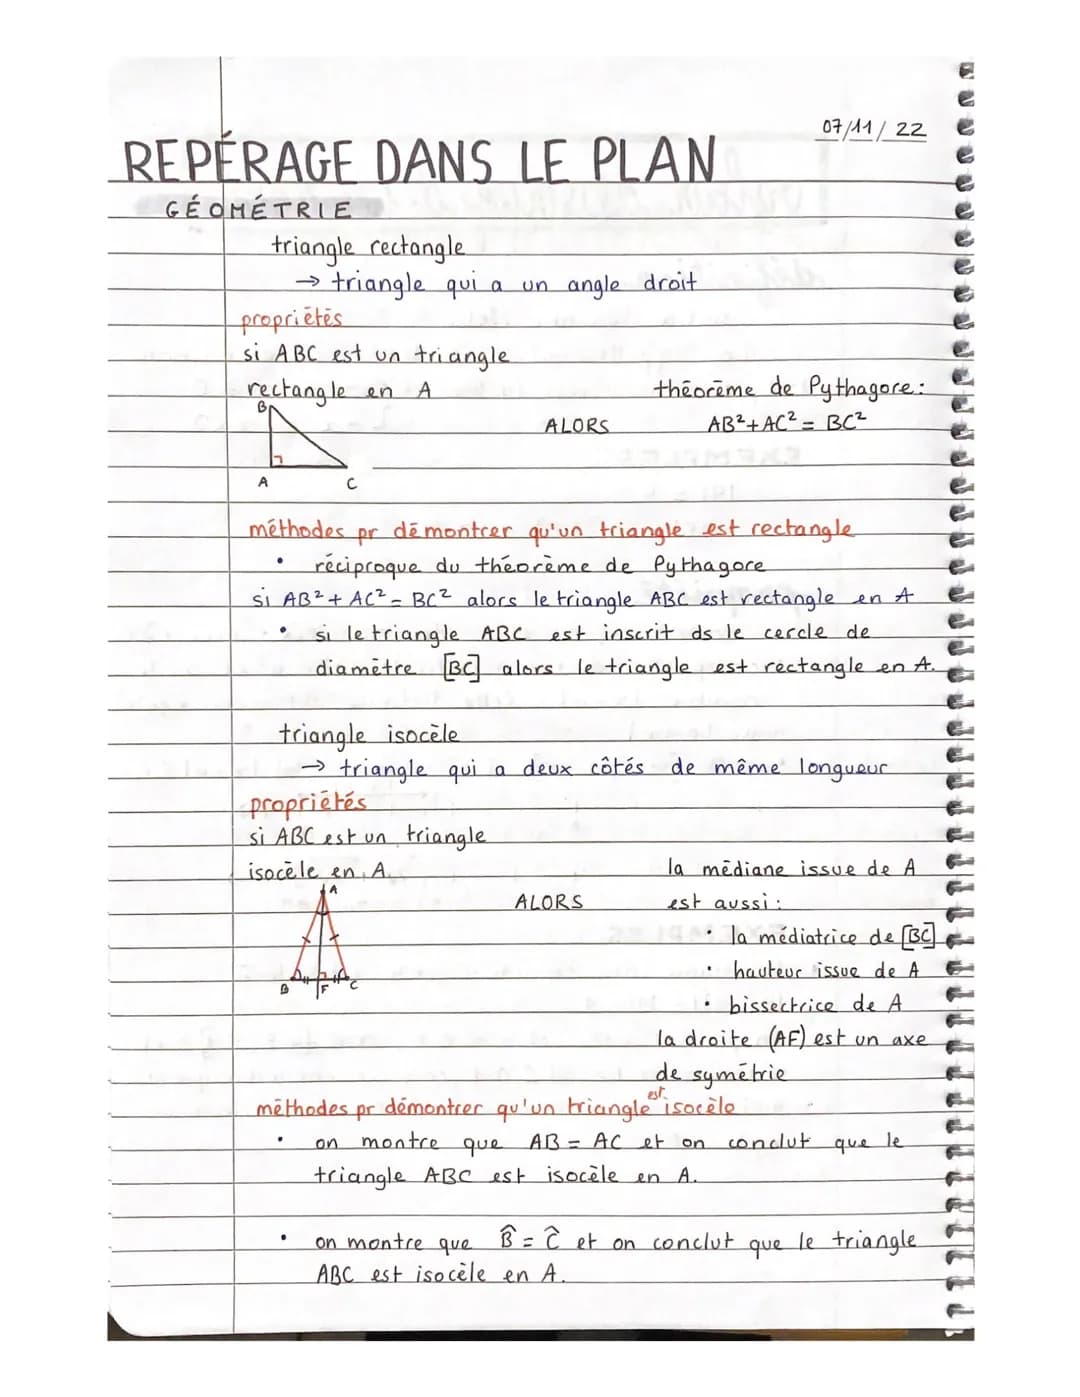 07/11/22
REPÉRAGE DANS LE PLAN
GÉOMÉTRIE
triangle rectangle
→ triangle qui a un angle droit
propriétés
si ABC est un triangle
rectangle en A
théorème de Pythagore:
B
ALORS
AB²+AC² = BC²
A C
méthodes pr démontrer qu'un triangle est rectangle
• réciproque du théorème de Pythagore
si AB² + AC² = BC² alors le triangle ABC est rectangle en A
• si le triangle ABC est inscrit ds le cercle de
diamètre [BC] alors le triangle est rectangle en A.
triangle isocèle
→ triangle qui a deux côtés de même longueur
propriétés
si ABC est un triangle
isocèle en A.
la médiane issue de A
A
ALORS
est aussi :
• la médiatrice de [BC]
• hauteur issue de A
B F C
• bissectrice de A
la droite (AF) est un axe
de symétrie
méthodes pr démontrer qu'un triangle est isocèle
• on montre que AB = AC et on conclut que le
triangle ABC est isocèle en A.
• on montre que B̂ = Ĉ et on conclut que le triangle
ABC est isocèle en A.